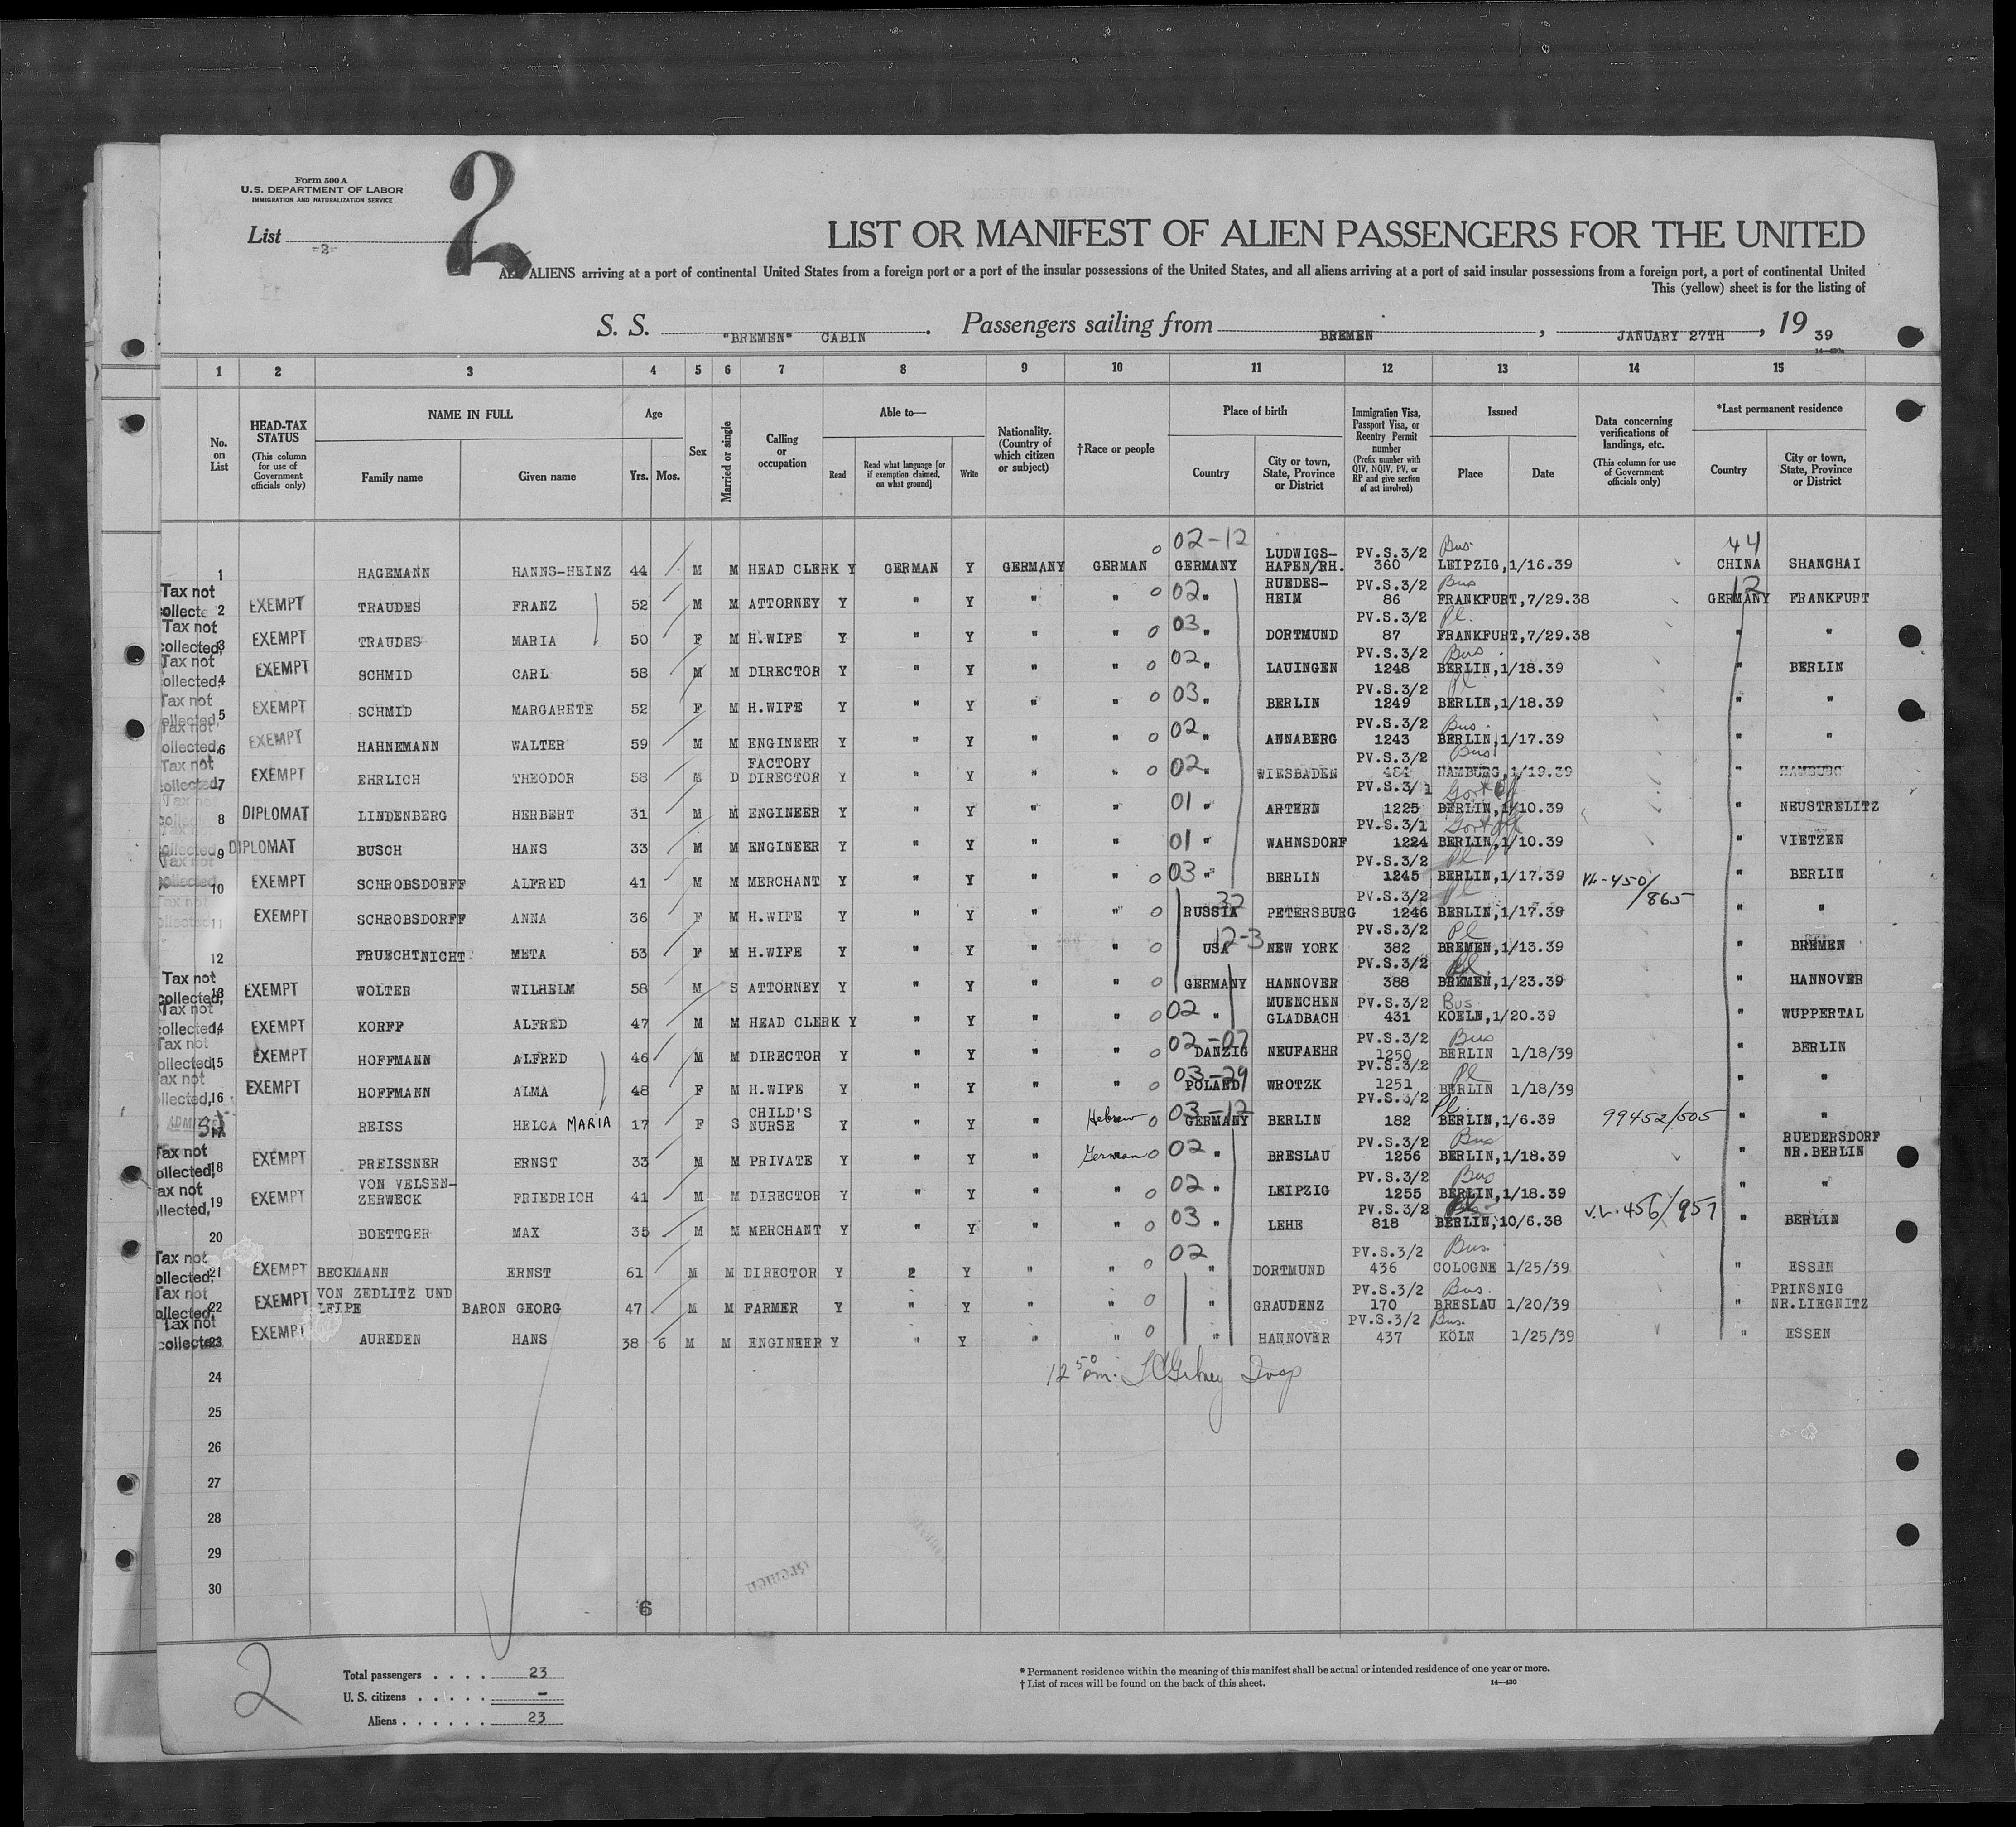 Form 500 A
U.S. DEPARTMENT OF LABOR
IMMIGRATION AND NATURALIZATION SERVICE
2
List -2-
LIST OR MANIFEST OF ALIEN PASSENGERS FOR THE UNITED
ALL ALIENS arriving at a port of continental United States from a foreign port or a port of the insular possessions of the United States, and all aliens arriving at a port of said insular possessions from a foreign port, a port of continental United
This (yellow) sheet is for the listing of
S. S. "BREMEN" CABIN. Passengers sailing from BREMEN, JANUARY 27TH, 19 39
14—430a
1 2 3 4 5 6 7 8 9 10 11 12 13 14 15
No. on List
HEAD-TAX STATUS (This column for use of Government officials only)
NAME IN FULL Family name Given name
Age Yrs. Mos.
Sex
Married or single
Calling or occupation
Able to— Read Read what language [or if exemption claimed, on what ground] Write
Nationality. (Country of which citizen or subject)
†Race or people
Place of birth Country City or town, State, Province or District
Immigration Visa, Passport Visa, or Reentry Permit number (Prefix number with QIV, NQIV, PV, or RP and give section of act involved)
Issued Place Date
Data concerning verifications of landings, etc. (This column for use of Government officials only)
*Last permanent residence Country City or town, State, Province or District
1 HAGEMANN HANNS-HEINZ 44 M M HEAD CLERK Y GERMAN Y GERMANY GERMAN 0 02-12 GERMANY LUDWIGS-HAFEN/RH. PV.S.3/2 360 Bus LEIPZIG, 1/16.39 44 CHINA SHANGHAI
Tax not collected 2 EXEMPT TRAUDES FRANZ 52 M M ATTORNEY Y " Y " " 0 02 " RUEDES-HEIM PV.S.3/2 86 Bus FRANKFURT, 7/29.38 12 GERMANY FRANKFURT
Tax not collected, 3 EXEMPT TRAUDES MARIA 50 F M H.WIFE Y " Y " " 0 03 " DORTMUND PV.S.3/2 87 Pl. FRANKFURT, 7/29.38 " "
Tax not collected, 4 EXEMPT SCHMID CARL 58 M M DIRECTOR Y " Y " " 0 02 " LAUINGEN PV.S.3/2 1248 Bus. BERLIN, 1/18.39 " BERLIN
Tax not collected, 5 EXEMPT SCHMID MARGARETE 52 F M H.WIFE Y " Y " " 0 03 " BERLIN PV.S.3/2 1249 Pl BERLIN, 1/18.39 " "
Tax not collected, 6 EXEMPT HAHNEMANN WALTER 59 M M ENGINEER Y " Y " " 0 02 " ANNABERG PV.S.3/2 1243 Bus. BERLIN, 1/17.39 " "
Tax not collected, 7 EXEMPT EHRLICH THEODOR 58 M D FACTORY DIRECTOR Y " Y " " 0 02 " WIESBADEN PV.S.3/2 Bus HAMBURG, 1/19.39 " HAMBURG
Tax not 8 DIPLOMAT LINDENBERG HERBERT 31 M M ENGINEER Y " Y " " 01 " ARTERN PV.S.3/1 1225 BERLIN, 1/10.39 " NEUSTRELITZ
collected, 9 DIPLOMAT BUSCH HANS 33 M M ENGINEER Y " Y " " 01 " WAHNSDORF PV.S.3/1 1224 BERLIN, 1/10.39 " VIETZEN
Tax not collected 10 EXEMPT SCHROBSDORFF ALFRED 41 M M MERCHANT Y " Y " " 0 03 " BERLIN PV.S.3/2 1245 Pl. BERLIN, 1/17.39 VL-450/865 " BERLIN
Tax not collected 11 EXEMPT SCHROBSDORFF ANNA 36 F M H.WIFE Y " Y " " 0 32 RUSSIA PETERSBURG PV.S.3/2 1246 Pl BERLIN, 1/17.39 " "
12 FRUECHTNICHT META 53 F M H.WIFE Y " Y " " 0 12-3 USA NEW YORK PV.S.3/2 382 Pl BREMEN, 1/13.39 " BREMEN
Tax not collected, 13 EXEMPT WOLTER WILHELM 58 M S ATTORNEY Y " Y " " 0 GERMANY HANNOVER PV.S.3/2 388 Pl. BREMEN, 1/23.39 " HANNOVER
Tax not collected, 14 EXEMPT KORFF ALFRED 47 M M HEAD CLERK Y " Y " " 0 02 " MUENCHEN GLADBACH PV.S.3/2 431 Bus KOELN, 1/20.39 " WUPPERTAL
Tax not ollected, 15 EXEMPT HOFFMANN ALFRED 46 M M DIRECTOR Y " Y " " 0 02-07 DANZIG NEUFAEHR PV.S.3/2 1250 Bus BERLIN 1/18/39 " BERLIN
ax not llected, 16 EXEMPT HOFFMANN ALMA 48 F M H.WIFE Y " Y " " 0 03-29 POLAND WROTZK PV.S.3/2 1251 Pl BERLIN 1/18/39 " "
17 REISS HELGA MARIA 17 F S CHILD'S NURSE Y " Y " Hebrew 0 03-12 GERMANY BERLIN PV.S.3/2 182 Pl. BERLIN, 1/6.39 99452/505 " "
Tax not ollected, 18 EXEMPT PREISSNER ERNST 33 M M PRIVATE Y " Y " German 0 02 " BRESLAU PV.S.3/2 1256 Bus BERLIN, 1/18.39 " RUEDERSDORF NR.BERLIN
ax not ollected, 19 EXEMPT VON VELSEN-ZERWECK FRIEDRICH 41 M M DIRECTOR Y " Y " " 0 02 " LEIPZIG PV.S.3/2 1255 Bus BERLIN, 1/18.39 " "
20 BOETTGER MAX 35 M M MERCHANT Y " Y " " 0 03 " LEHE PV.S.3/2 818 BERLIN, 10/6.38 V.L.456/957 " BERLIN
Tax not ollected, 21 EXEMPT BECKMANN ERNST 61 M M DIRECTOR Y " Y " " 0 02 " DORTMUND PV.S.3/2 436 Bus. COLOGNE 1/25/39 " ESSEN
Tax not ollected, 22 EXEMPT VON ZEDLITZ UND LEIPE BARON GEORG 47 M M FARMER Y " Y " " 0 " GRAUDENZ PV.S.3/2 170 Bus. BRESLAU 1/20/39 " PRINSNIG NR.LIEGNITZ
Tax not collected 23 EXEMPT AUREDEN HANS 38 6 M M ENGINEER Y " Y " " 0 " HANNOVER PV.S.3/2 437 Bus. KÖLN 1/25/39 " ESSEN
24 12 50 pm. Insp
25
26
27
28
29
30
6
2
Total passengers . . . . 23
U. S. citizens . . . . . . -
Aliens . . . . . . 23
* Permanent residence within the meaning of this manifest shall be actual or intended residence of one year or more.
† List of races will be found on the back of this sheet.
14—430